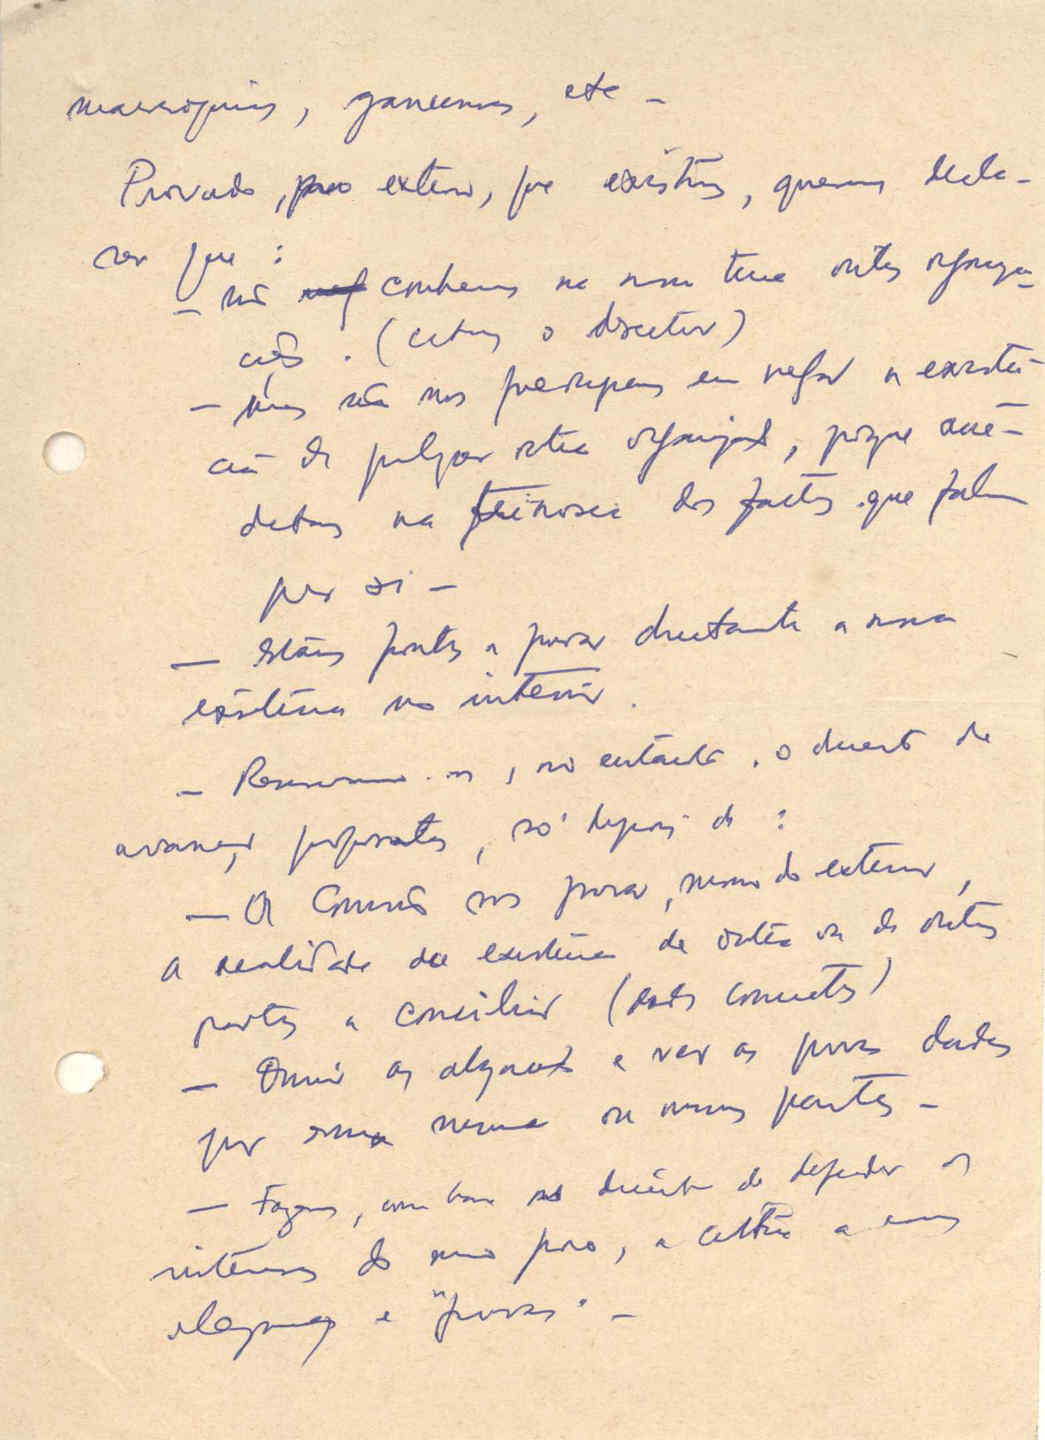 marroquinos, ganenses, etc -
Provado, para exterior, que existimos, queremos decla-
rar que:
- não conhecemos na nossa terra outras organiza-
ções. (certamos o discutir)
- mas não nos preocupamos em negar a existên-
cia de qualquer outra organização, porque acre-
ditamos na dos factos que falam
por si -
- Estamos prontos a provar directamente a nossa
existência no interior.
- Reservamo-nos, no entanto, o direito de
avançar propostas, só depois de:
- A Comissão nos provar, mesmo do exterior,
a realidade da existência de outra ou de outras
partes a conciliar (dados concretos)
- Ouvir as alegações e ver as provas dadas
por essa mesma ou mesmas partes -
- Fazemos, com base no direito de defender os
interesses do nosso povo, a crítica a essas
alegações e "provas" -